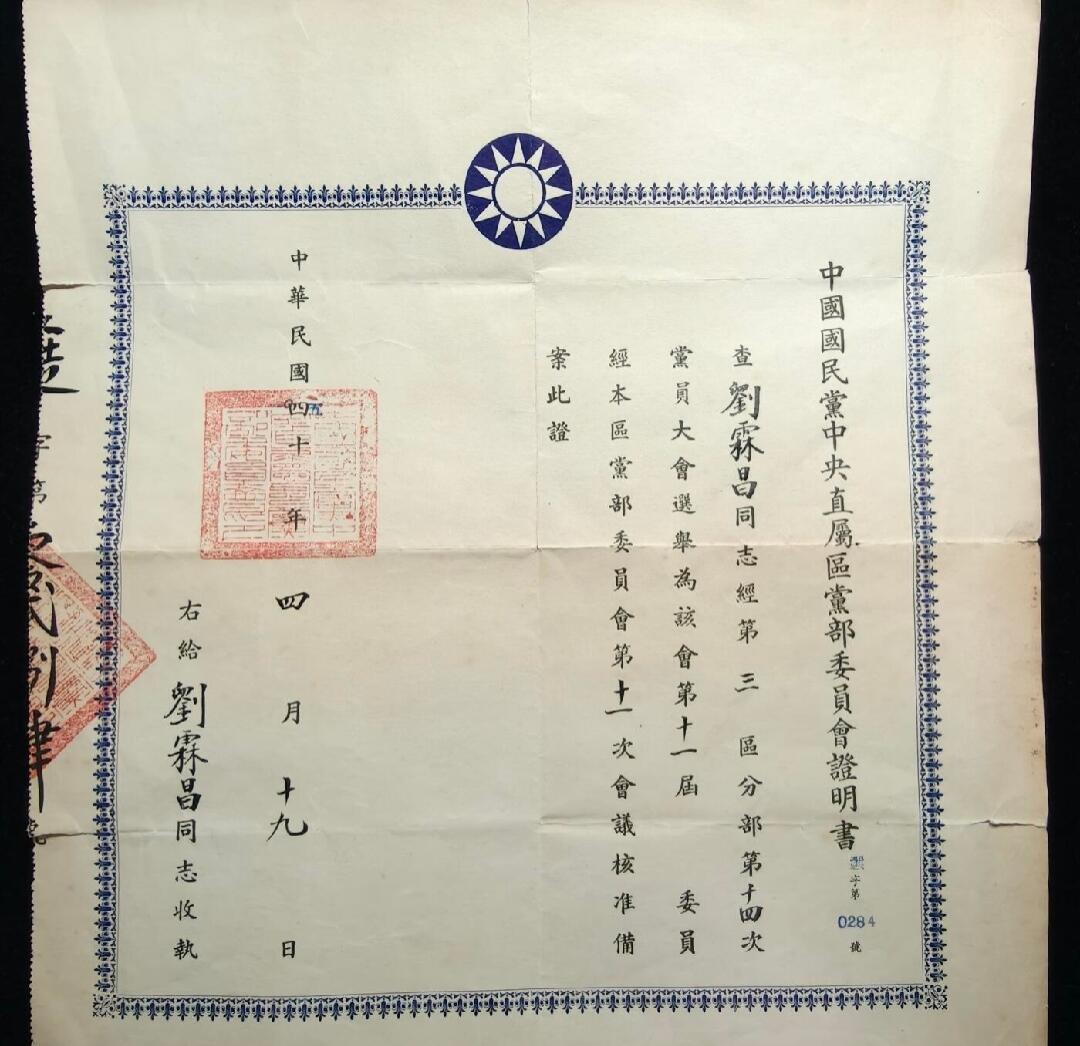 中國國民黨中央直屬區黨部委員會證明書
字第0284號
查劉霖昌同志經第三區分部第十四次
黨員大會選舉為該會第十一屆委員
經本區黨部委員會第十一次會議核准備
案此證
中華民國四十五年四月十九日
右給劉霖昌同志收執
字第
捌肆號